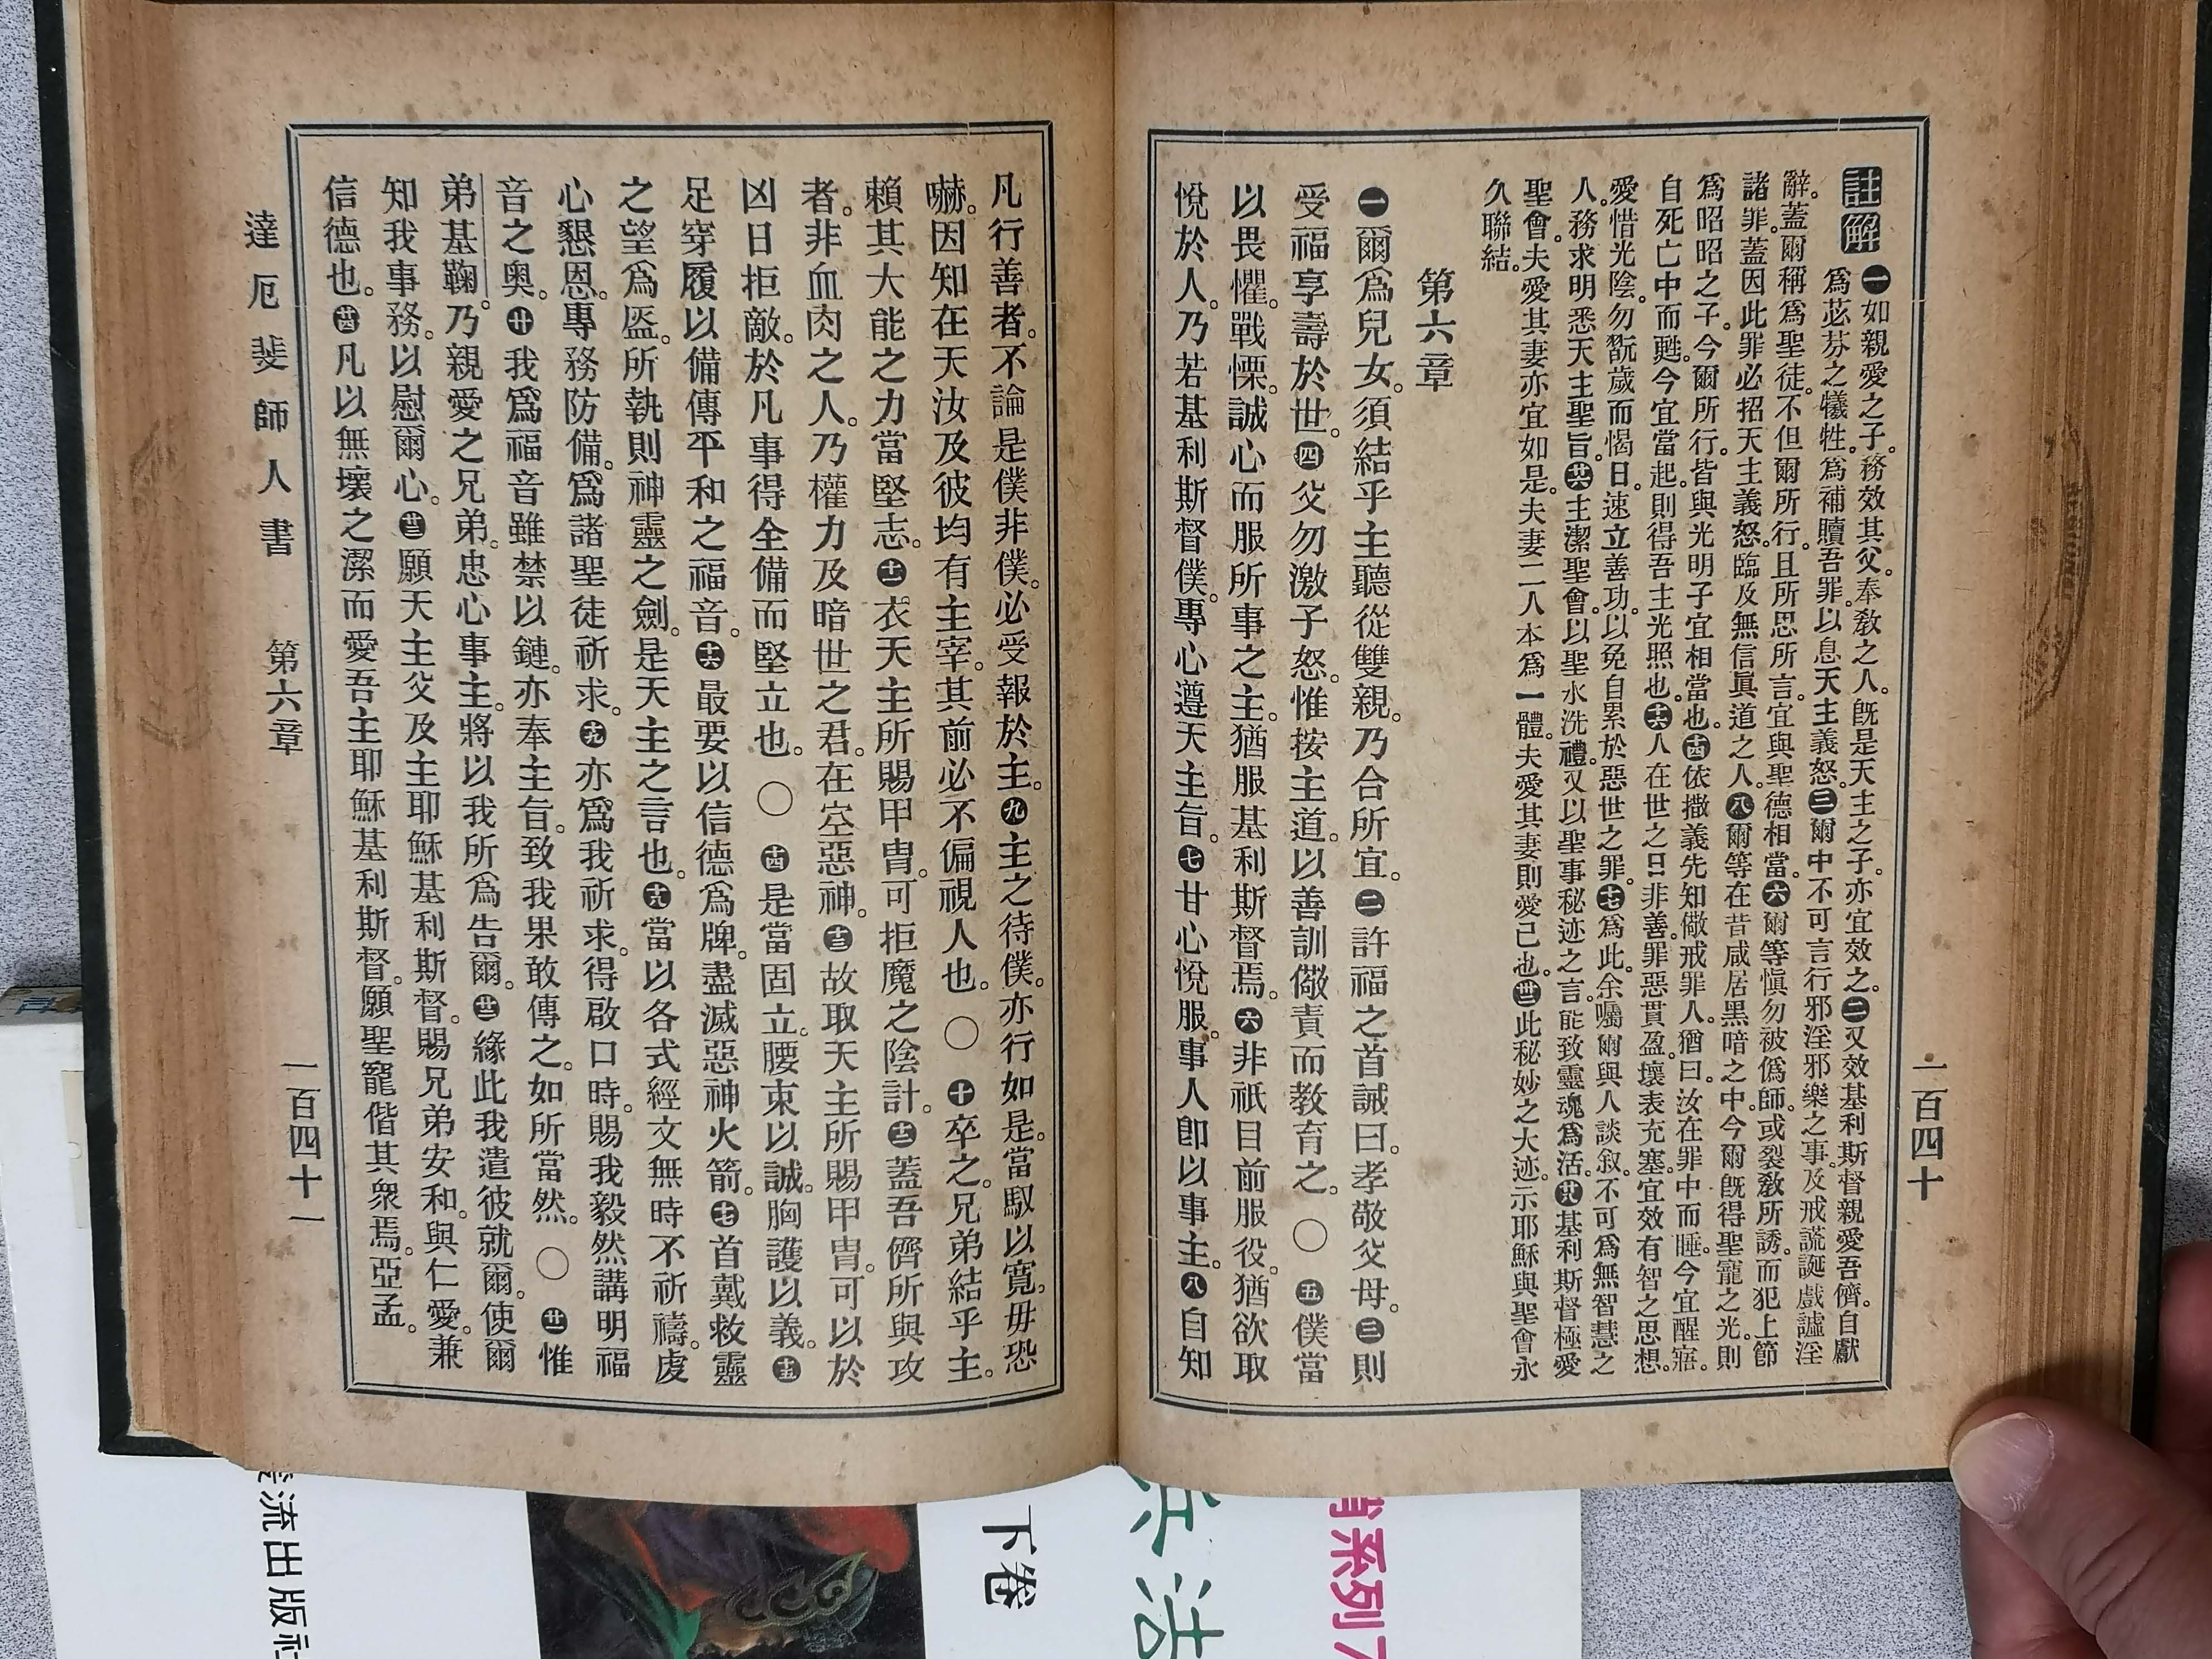 一百四十
註解
㊀如親愛之子。務效其父。奉敎之人。旣是天主之子。亦宜效之。㊁又效基利斯督親愛吾儕。自獻
爲苾芬之犧牲。爲補贖吾罪。以息天主義怒。㊂爾中不可言行邪淫邪樂之事。及戒謊誕戲謔淫
辭。蓋爾稱爲聖徒。不但爾所行。且所思所言。宜與聖德相當。㊅爾等愼勿被僞師。或裂敎所誘。而犯上節
諸罪。蓋因此罪必招天主義怒。臨及無信眞道之人。㊇爾等在昔咸居黑暗之中。今爾旣得聖寵之光。則
爲昭昭之子。今爾所行。皆與光明子宜相當也。十四依撒義先知儆戒罪人。猶曰。汝在罪中而睡。今宜醒寤。
自死亡中而甦。今宜當起。則得吾主光照也。十六人在世之日。非善罪惡貫盈。壞表充塞。宜效有智之思想。
愛惜光陰。勿翫歲而愒日。速立善功。以免自累於惡世之罪。十七爲此。余囑爾與人談叙。不可爲無智慧之
人。務求明悉天主聖旨。廿六主潔聖會。以聖水洗禮。又以聖事秘迹之言。能致靈魂爲活。廿八基利斯督極愛
聖會。夫愛其妻亦宜如是。夫妻二人本爲一體。夫愛其妻則愛己也。卅二此秘妙之大迹。示耶穌與聖會永
久聯結。
第六章
㊀爾爲兒女。須結乎主聽從雙親。乃合所宜。㊁許福之首誡曰。孝敬父母。㊂則
受福享壽於世。㊃父勿激子怒。惟按主道。以善訓儆責而教育之。〇㊄僕當
以畏懼。戰慄。誠心而服所事之主。猶服基利斯督焉。㊅非祇目前服役。猶欲取
悅於人。乃若基利斯督僕。專心遵天主旨。㊆甘心悅服。事人卽以事主。㊇自知
凡行善者。不論是僕非僕。必受報於主。㊈主之待僕。亦行如是。當馭以寬。毋恐
嚇。因知在天汝及彼均有主宰。其前必不偏視人也。〇㊉卒之。兄弟結乎主。
賴其大能之力當堅志。十一衣天主所賜甲冑。可拒魔之陰計。十二蓋吾儕所與攻
者。非血肉之人。乃權力及暗世之君。在空惡神。十三故取天主所賜甲冑。可以於
凶日拒敵。於凡事得全備而堅立也。〇十四是當固立。腰束以誠。胸護以義。十五
足穿履以備傳平和之福音。十六最要以信德爲牌。盡滅惡神火箭。十七首戴救靈
之望爲盔。所執則神靈之劍。是天主之言也。十八當以各式經文無時不祈禱。虔
心懇恩。專務防備。爲諸聖徒祈求。十九亦爲我祈求。得啟口時。賜我毅然講明福
音之奥。二十我爲福音雖禁以鏈。亦奉主旨。致我果敢傳之。如所當然。〇廿一惟
弟基鞠。乃親愛之兄弟。忠心事主。將以我所爲告爾。廿二緣此我遣彼就爾。使爾
知我事務。以慰爾心。廿三願天主父及主耶穌基利斯督。賜兄弟安和。與仁愛。兼
信德也。廿四凡以無壞之潔而愛吾主耶穌基利斯督。願聖寵偕其衆焉。亞孟。
達厄斐師人書 第六章 一百四十一
流出版社
下卷
兵法
肖系列7